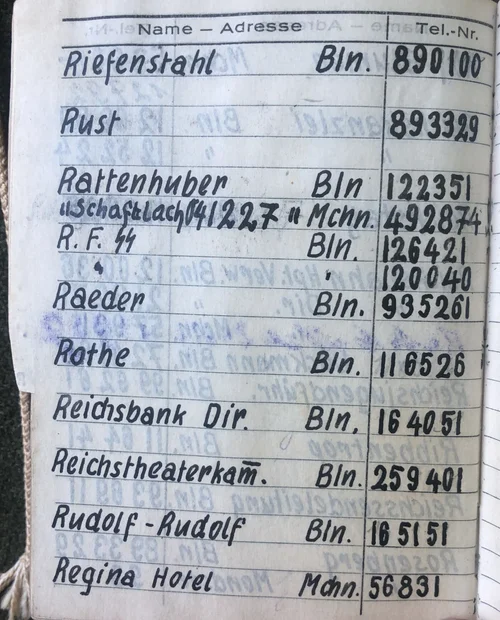 Name – Adresse Tel.-Nr.
Riefenstahl Bln. 890100
Rust 893329
Rattenhuber Bln 122351
"Schaftlach 41227 " Mchn. 492874
R. F. SS Bln. 126421
" " 120040
Raeder Bln. 935261
Rothe Bln. 116526
Reichsbank Dir. Bln. 164051
Reichstheaterkam̅. Bln. 259401
Rudolf-Rudolf Bln. 165151
Regina Hotel Mchn. 56831